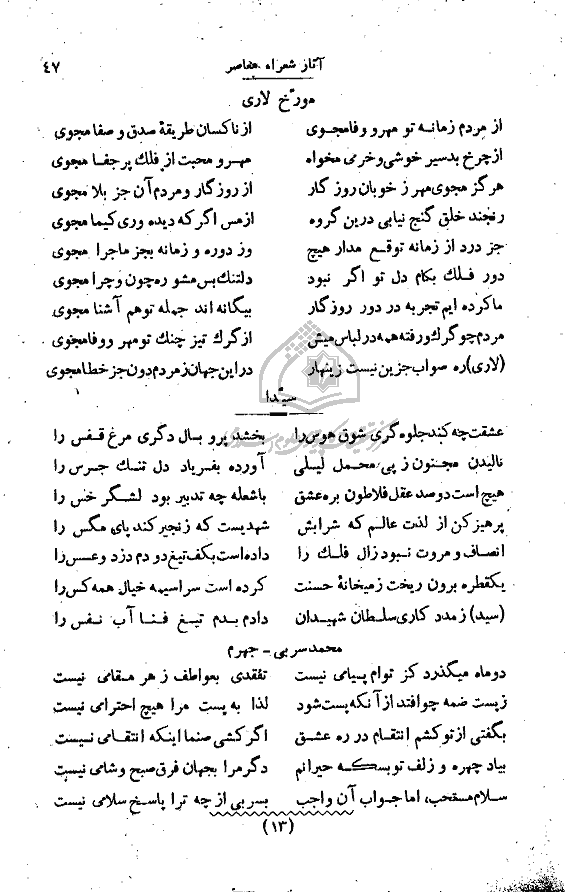 آثار شعراء معاصر ٤٧
مورّخ لاری
از مردم زمانه تو مهرو وفامجوی ازناکسان طریقهٔ صدق و صفا مجوی
ازچرخ بدسیر خوشی وخرمی مخواه مهرو محبت از فلك پرجفا مجوی
هرگز مجوی مهر ز خوبان روز گار از روز گار ومردم آن جز بلا مجوی
رنجند خلق گنج نیابی درین گروه ازمس اگر که دیده وری کیمیا مجوی
جز درد از زمانه توقع مدار هیچ وز دوره و زمانه بجز ماجرا مجوی
دور فلك بکام دل تو اگر نبود دلتنك بس مشو ره چون و چرا مجوی
ماکرده ایم تجربه در دور روزگار بیگانه اند جمله توهم آشنا مجوی
مردم چو گرك و رفته همه در لباس میش از گرك تیز چنك تو مهر ووفا مجوی
(لاری) ره صواب جزین نیست زینهار در این جهان ز مردم دون جز خطا مجوی
سیّدا
عشقت چه کند جلوه گری شوق هوس را بخشد پرو بال دگری مرغ قفس را
نالیدن مجنون ز پی محمل لیلی آورده بفریاد دل تنك جرس را
هیچ است دوصد عقل فلاطون بره عشق باشعله چه تدبیر بود لشگر خس را
پرهیز کن از لذت عالم که شرابش شهدیست که زنجیر کند پای مگس را
انصاف و مروت نبود زال فلك را داده است بکف تیغ دو دم دزد و عسس را
یکقطره برون ریخت ز میخانهٔ حسنت کرده است سراسیمه خیال همه کس را
(سید) ز مدد کاری سلطان شهیدان دادم بدم تیغ فنا آب نفس را
محمد سربی - جهرم
دوماه میگذرد کز توام پیامی نیست تفقدی بعواطف ز هر مقامی نیست
زیست ضمه چو افتد از آنکه پست شود لذا به پست مرا هیچ احترامی نیست
بگفتی از تو کشم انتقام در ره عشق اگر کشی صنما اینکه انتقامی نیست
بیاد چهره و زلف تو بسکه حیرانم دگر مرا بجهان فرق صبح و شامی نیست
سلام مستحب، اما جواب آن واجب بسربی از چه ترا پاسخ سلامی نیست
(۱۳)